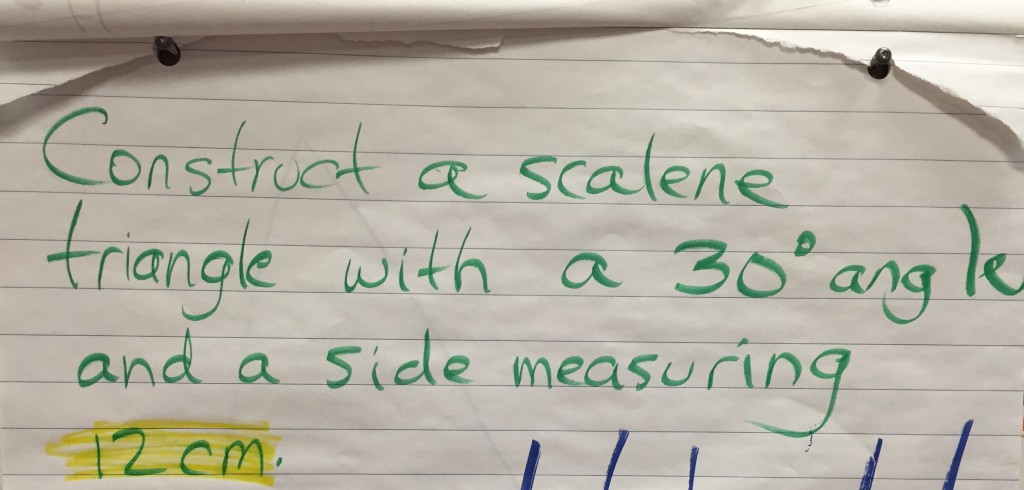 Construct a scalene
triangle with a 30° angle
and a side measuring
12 cm.